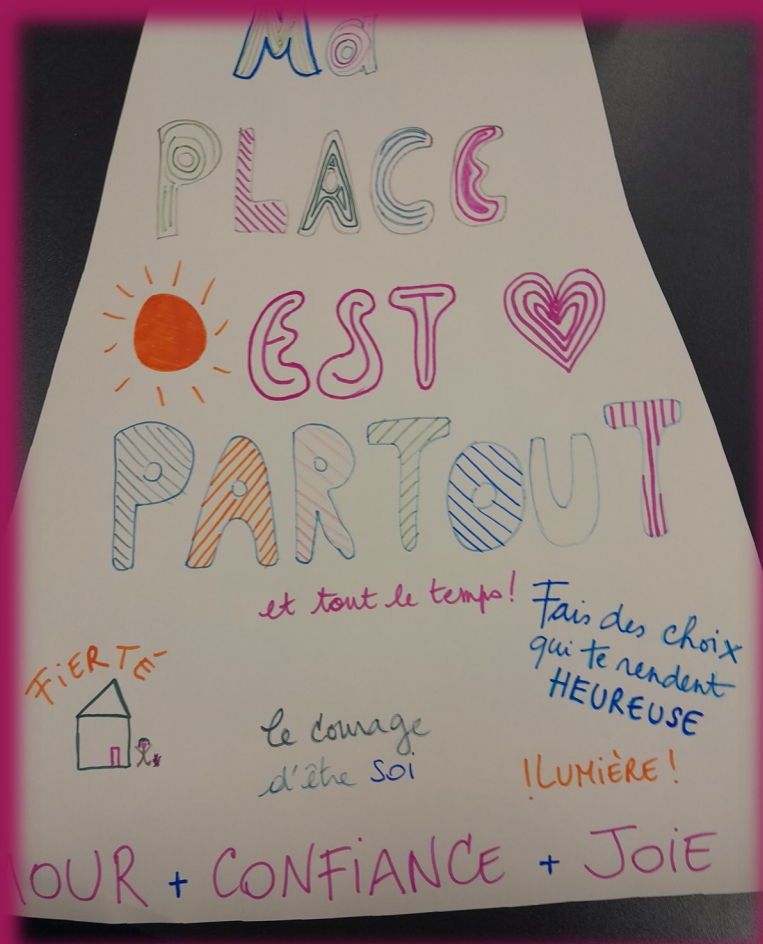 Ma
PLACE
EST
PARTOUT
et tout le temps!
Fais des choix
qui te rendent
HEUREUSE
FiERTÉ
le courage
d'être SOI
!LUMIÈRE!
MOUR + CONFiANCE + JOiE